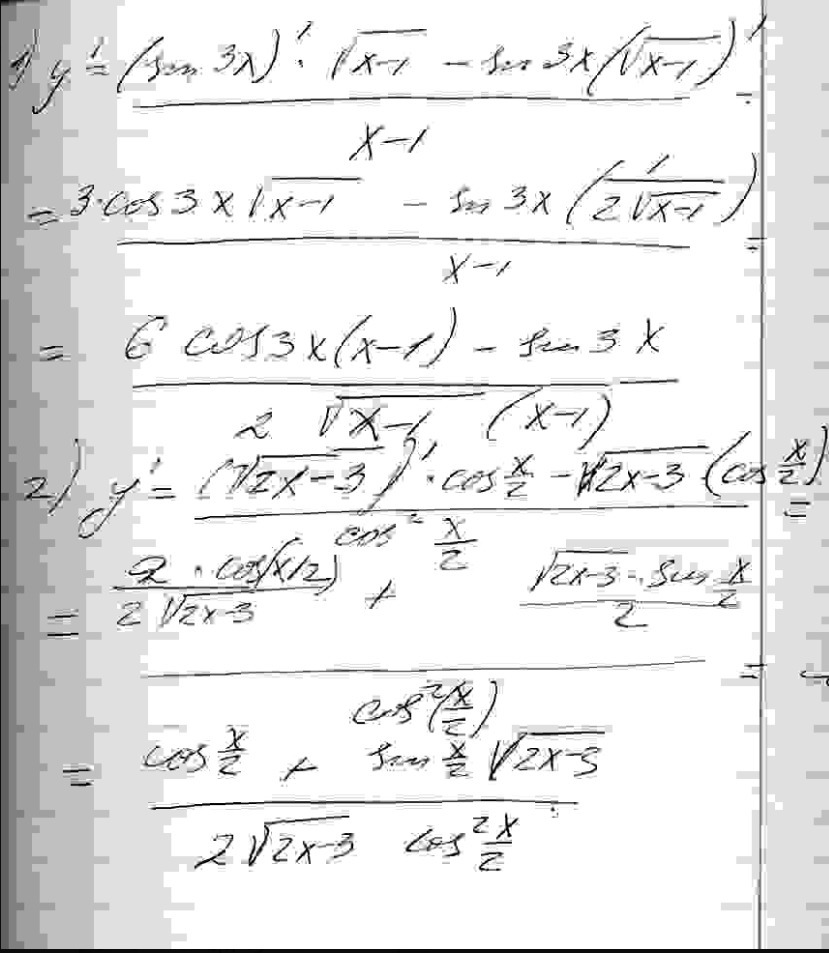 1) y' = ((sin 3x)' · √(x-1) - sin 3x (√(x-1))') / (x-1) =
= (3·cos 3x √(x-1) - sin 3x (1 / (2√(x-1)))) / (x-1) =
= (6 cos 3x (x-1) - sin 3x) / (2 √(x-1) (x-1))
2) y' = ((√(2x-3))' · cos x/2 - √(2x-3) (cos x/2)) / (cos² x/2) =
= ((2 · cos(x/2)) / (2√(2x-3)) + (√(2x-3) · sin x/2) / 2) / (cos²(x/2)) =
= (cos x/2 + sin x/2 √(2x-3)) / (2√(2x-3) cos² x/2)